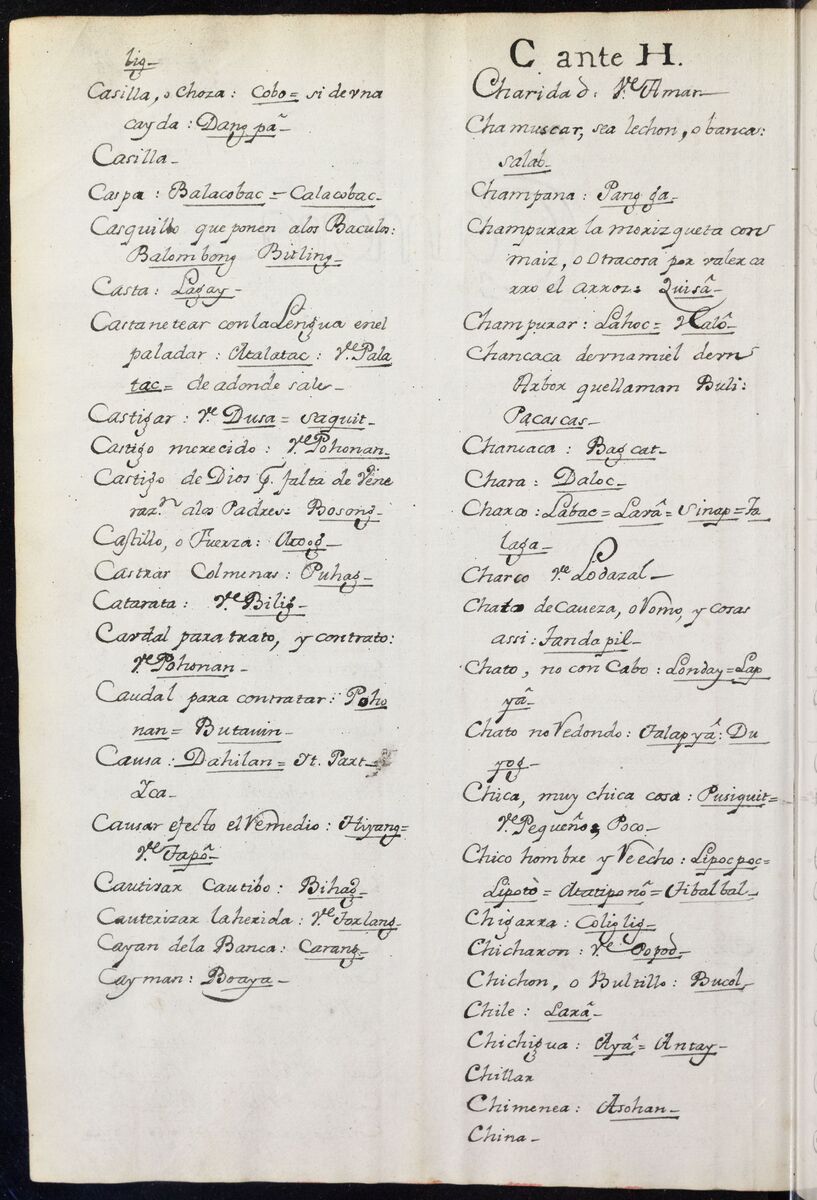 lig_
Casilla, o choza: Cobo= si de vna
cayda: Dang pâ_
Casilla_
Caspa: Balacobac= Calacobac_
Casquillo que ponen alos Baculos:
Balombong Bitling_
Casta: Lagay_
Castanetear con la Lengua enel
paladar: Atalatac: Vᵉ Pala
tac= de adonde sale_
Castigar: Vᵉ Dusa= Saquit_
Castigo merecido: Vᵉ Pohonan_
Castigo de Dios p. falta de Vene
raz.ⁿ alos Padres: Bosong_
Castillo, o Fuerza:
Castrar Colmenas: Puhag_
Catarata: Vᵉ Bilig_
Caudal para trato, y contrato:
Vᵉ Pohonan_
Caudal para contratar: Poho
nan= Butauin_
Causa: Dahilan= It. Part_
Yca_
Causar efecto el Remedio: Hiyang=
Vᵉ Tapô_
Cautivar Cautibo: Bihag_
Cauterizar la herida: Vᵉ Torlang_
Cayan dela Banca: Carang_
Cayman: Boaya_
C ante H.
Charidad: Vᵉ Amar_
Chamuscar, sea lechon, o banca:
salab_
Champana: Pang ga_
Champurar la morizqueta con
maiz, o otra cosa por valer ca
rro el arroz: Quisâ_
Champurar: Lahoc= Halô_
Chancaca de vna miel de vn
Arbor que llaman Buli:
Pacascas_
Chancaca: Bagcat_
Chara: Daloc_
Charco: Labac= Larâ= Sinap= Ta
laga_
Charco Vᵉ Lodazal_
Chato de Caueza, o Romo, y cosas
assi: Tandapil_
Chato, no con Cabo: Londay= Lap
yâ_
Chato no Redondo: Talapyâ: Du
yog_
Chica, muy chica cosa: Pusiquit=
Vᵉ Pequeño, Poco_
Chico hombre y Recho: Lipocpoc=
Lipotò= Atatiponô= Tibalbal_
Chigarra: Coliglig_
Chicharon: Vᵉ Popod_
Chichon, o Bultillo: Bucol_
Chile: Larâ_
Chichigua: Ayâ= Antay_
Chillar
Chimenea: Asohan_
China_